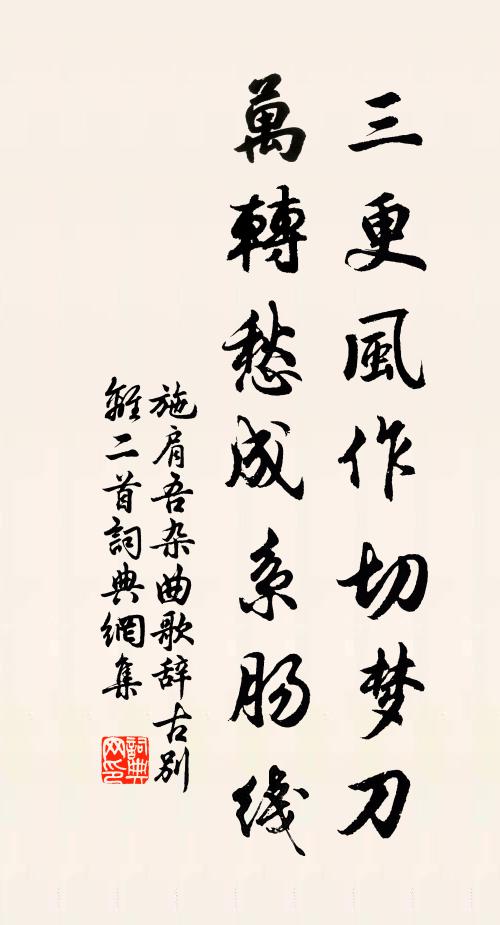 三更風作切梦刀
萬轉愁成系肠綫
施肩吾杂曲歌辞古别
離二首詞典網集
詞典
网印